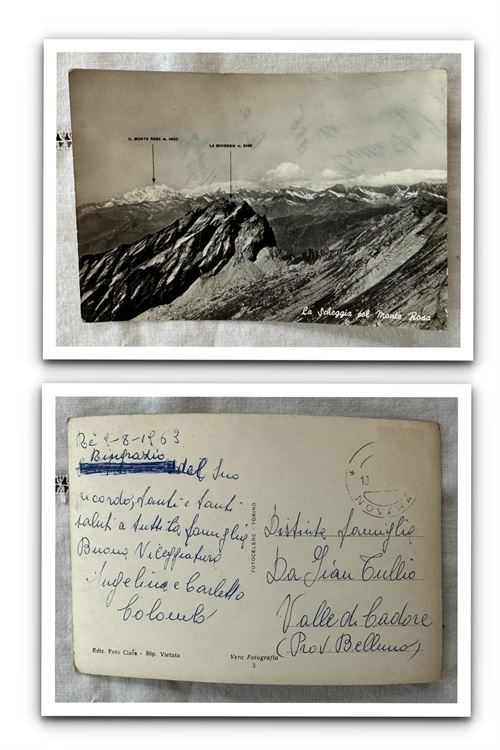 IL MONTE ROSA m. 4633
LA SCHEGGIA m. 2466
La Scheggia col Monte Rosa
Rè 9-8-1963
Ringrazio
del Suo
ricordo, tanti e tanti
saluti a tutta la famiglia
Buona Villeggiatura
Angelina e Carletto
Colombo
Ediz. Foto Clara - Rip. Vietata
FOTOCELERE - TORINO
Vera Fotografia
3
10
NOVARA
Distinta famiglia
Da Gian Tullio
Valle di Cadore
(Prov. Belluno)